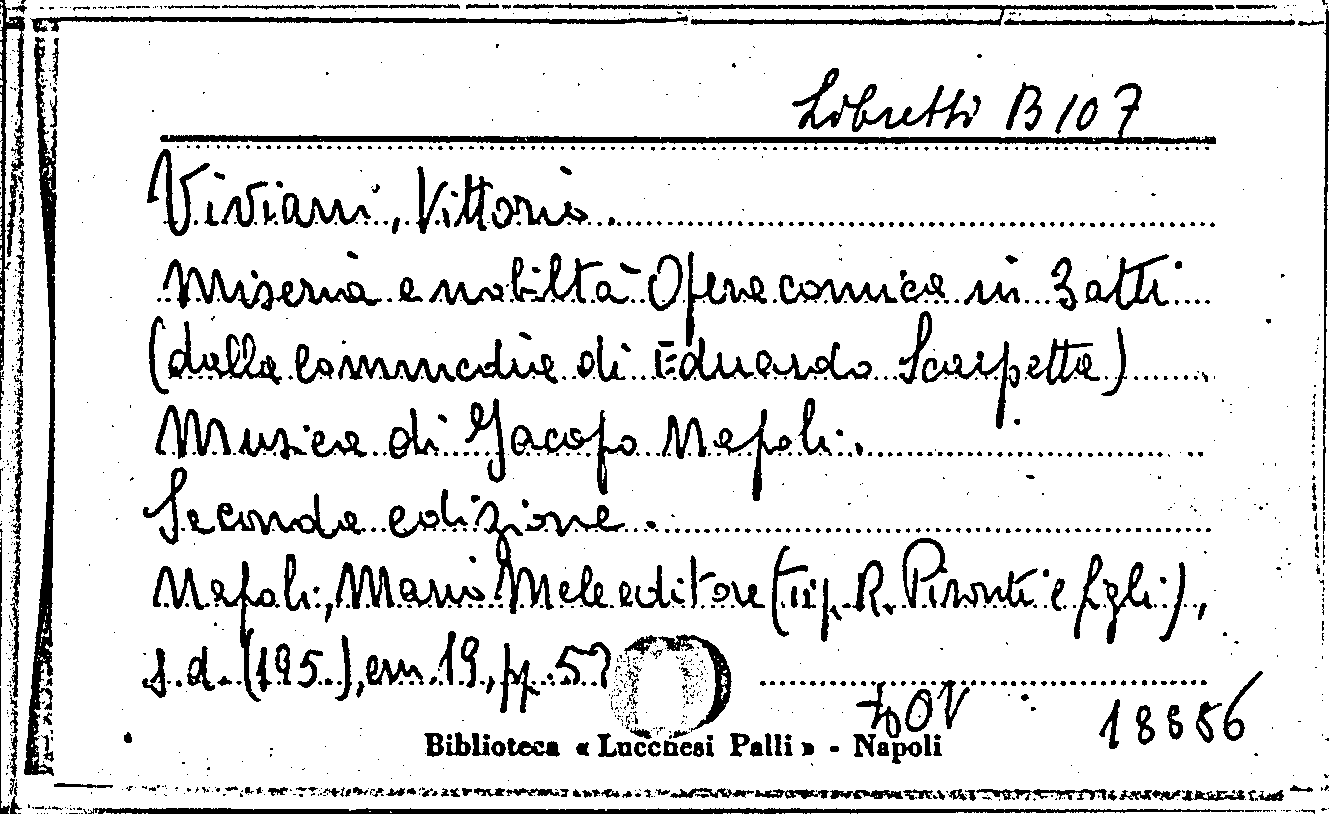 Libretti B 107
Viviani, Vittorio.
Miseria e nobiltà Opera comica in 3 atti
(dalla commedia di Eduardo Scarpetta)
Musica di Jacopo Napoli.
Seconda edizione.
Napoli, Mario Mele editore (Tip. R. Pironti e figli),
s.d. (195.), cm. 19, pp. 57
Biblioteca « Lucchesi Palli » - Napoli